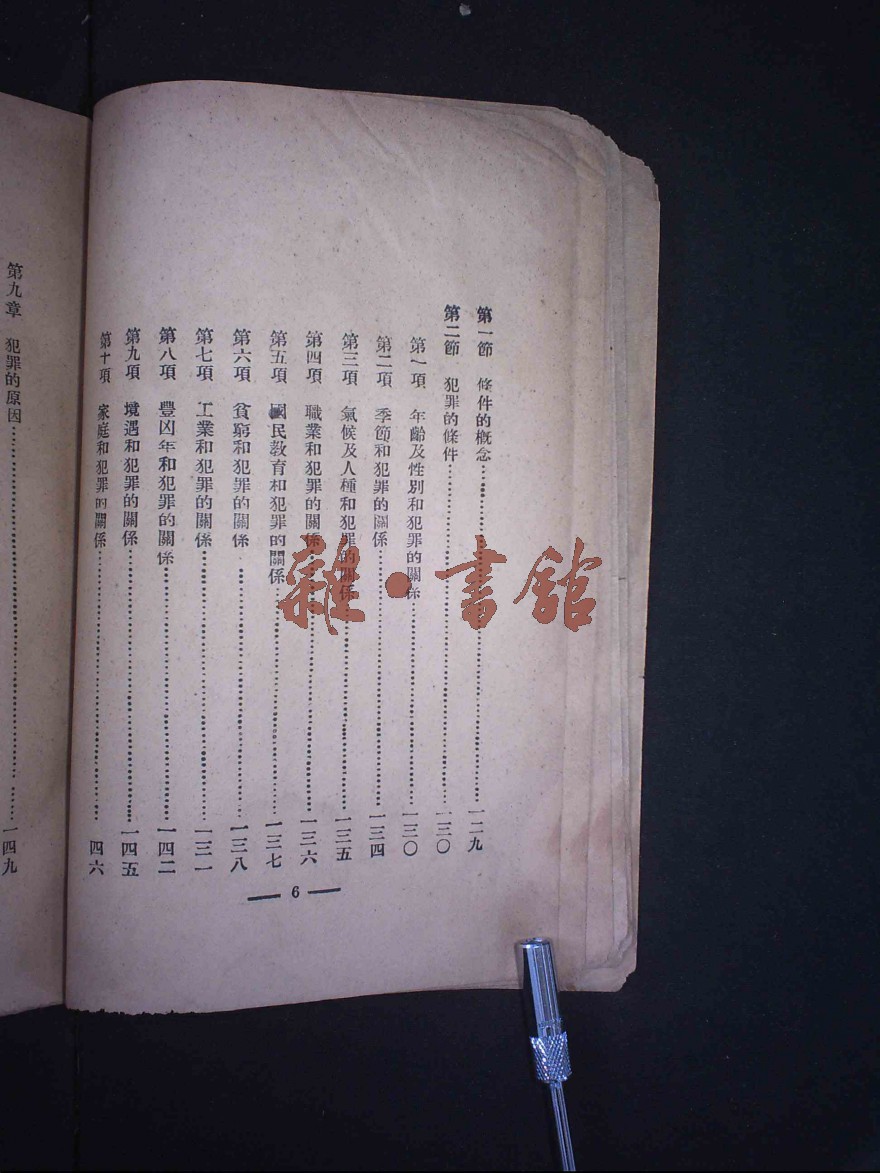 第一節　條件的概念……一二九
第二節　犯罪的條件……一三〇
第一項　年齡及性別和犯罪的關係……一三〇
第二項　季節和犯罪的關係……一三四
第三項　氣候及人種和犯罪的關係……一三五
第四項　職業和犯罪的關係……一三六
第五項　國民教育和犯罪的關係……一三七
第六項　貧窮和犯罪的關係……一三八
第七項　工業和犯罪的關係……一三一
第八項　豐凶年和犯罪的關係……一四二
第九項　境遇和犯罪的關係……一四五
第十項　家庭和犯罪的關係……四六
6
第九章　犯罪的原因……一四九
雜·書館